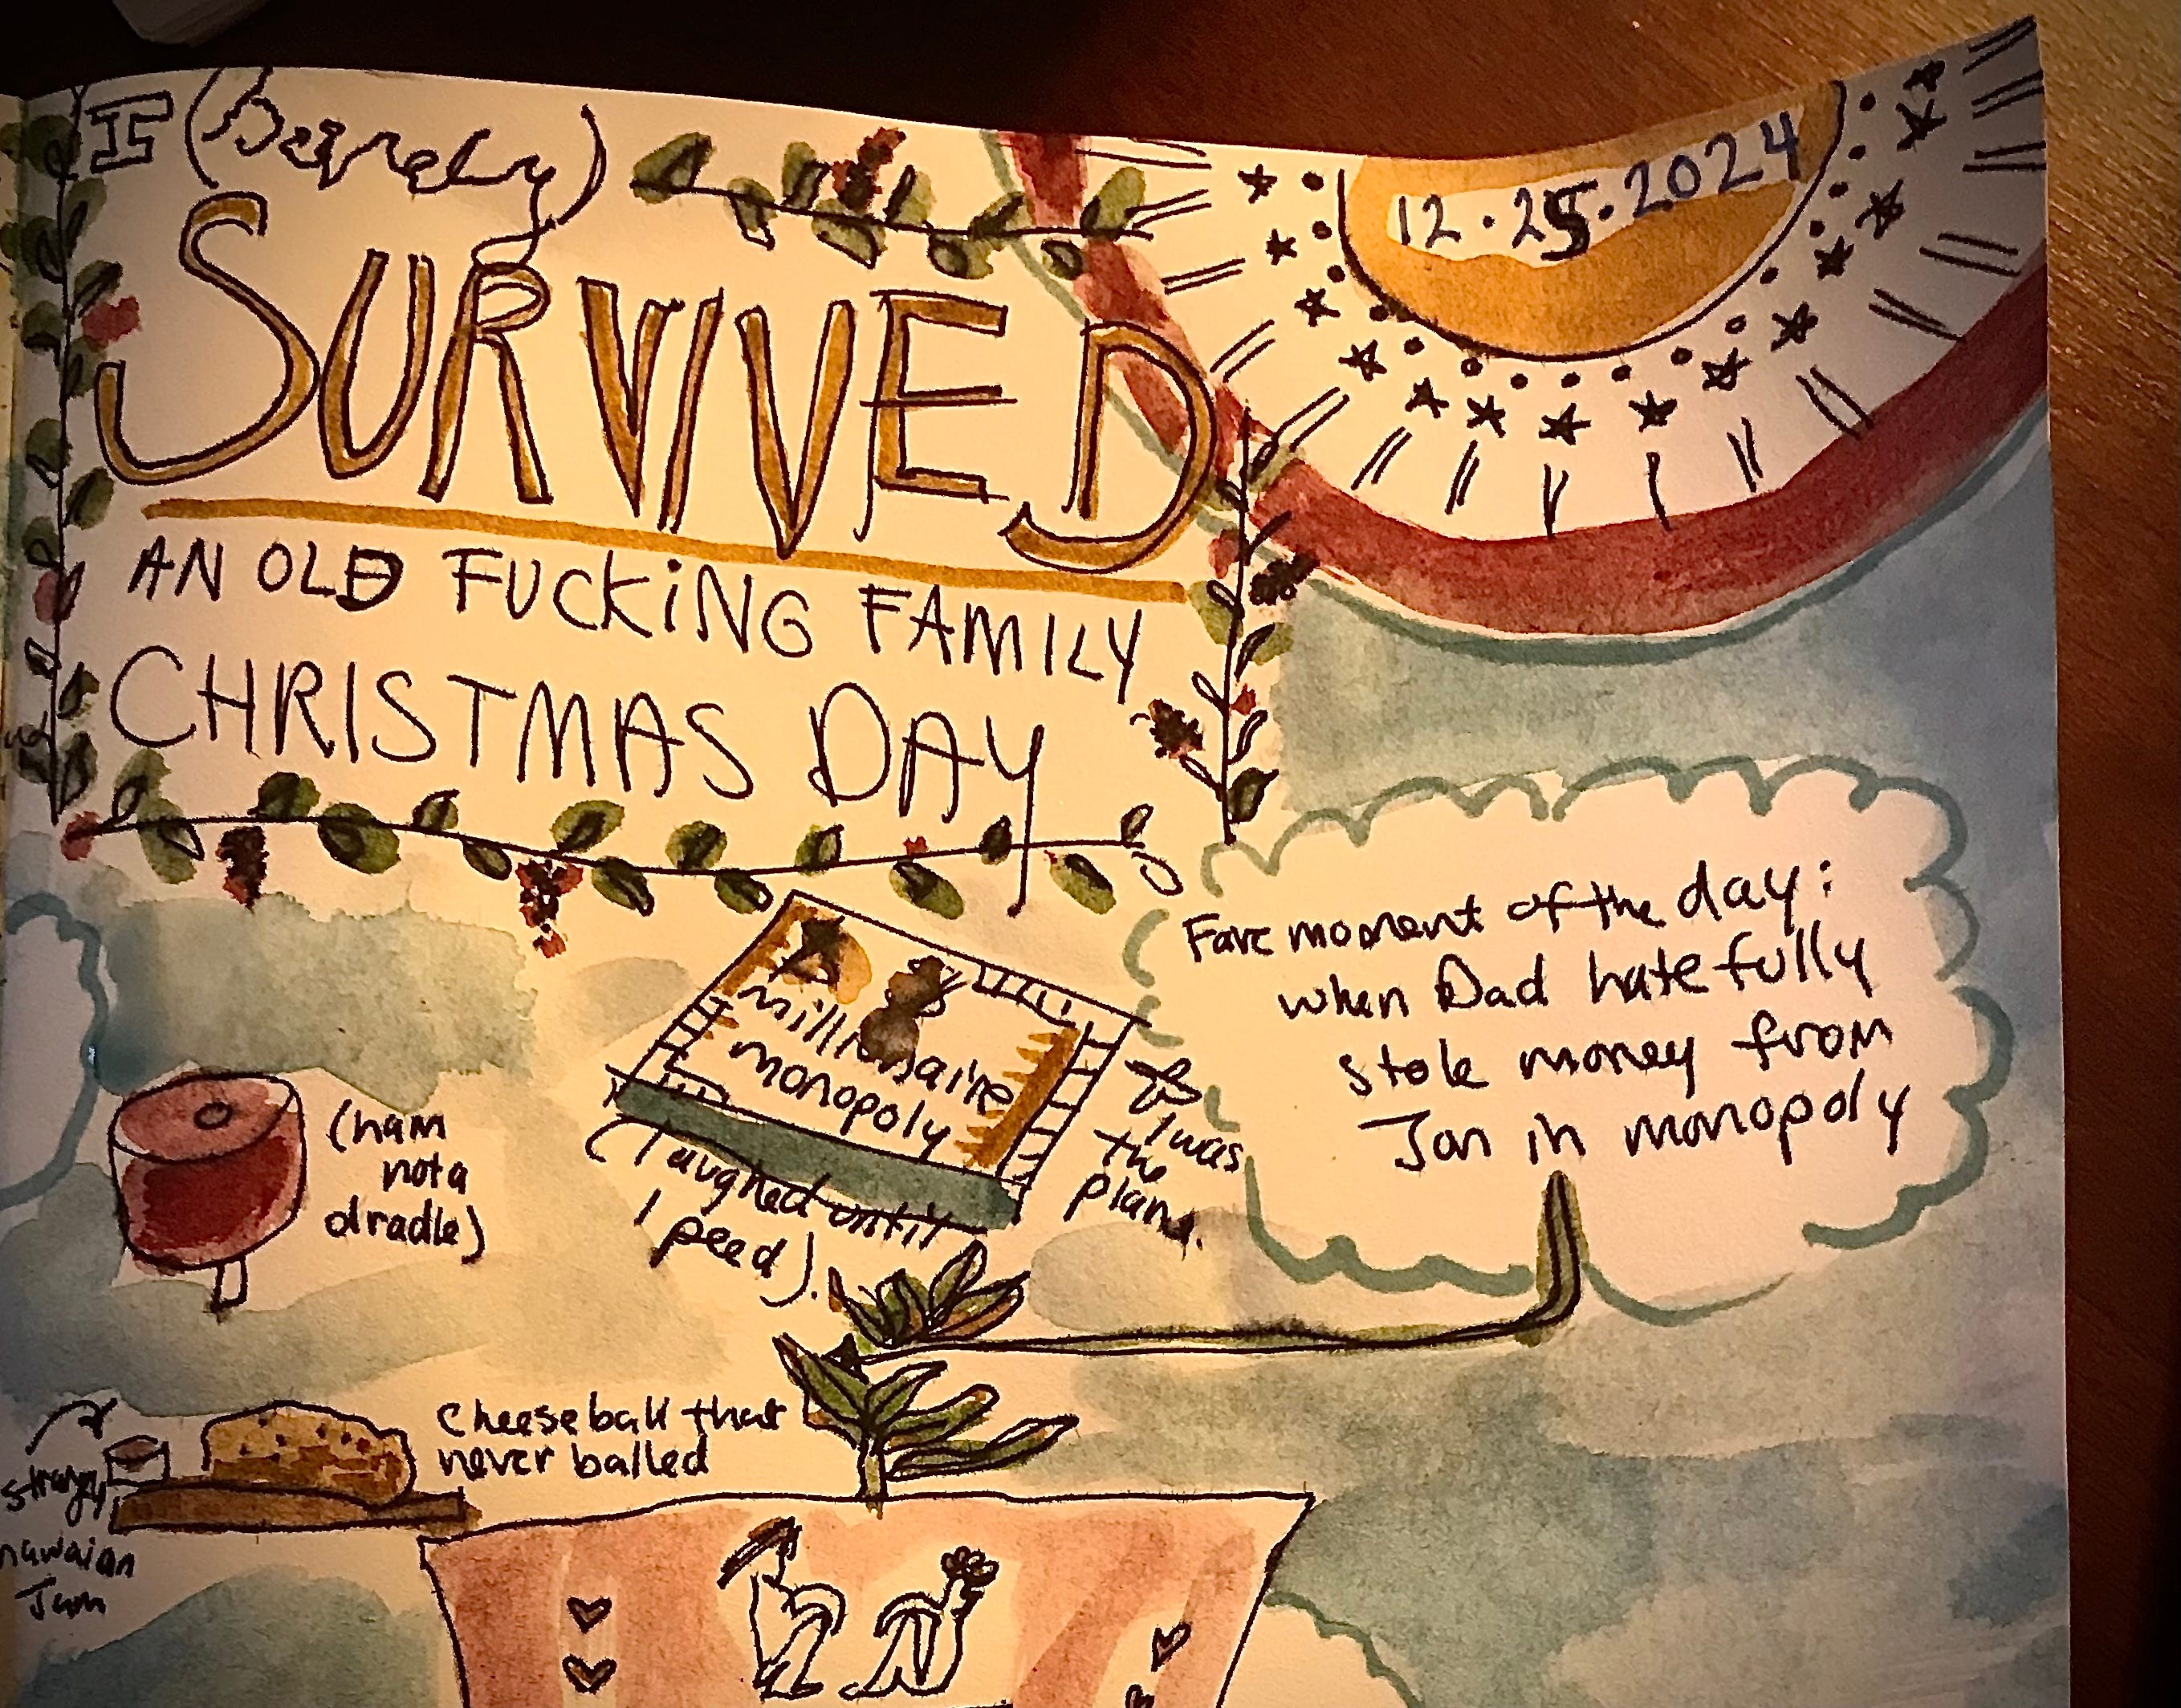 I (barely)
SURVIVED
AN OLD FUCKING FAMILY
CHRISTMAS DAY
12.25.2024
Fave moment of the day:
when Dad hatefully
stole money from
Jon in monopoly
millionaire
monopoly
I was
the
plane.
(laughed until
I peed).
(ham
not a
dradle)
Cheese ball that
never balled
hawaian
Jam